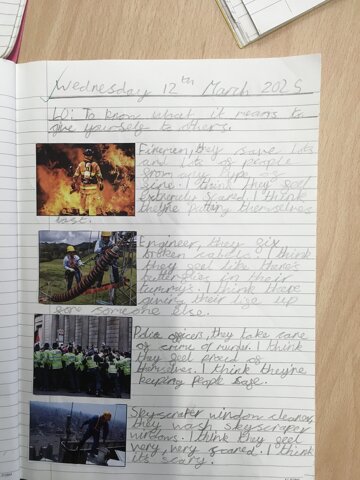 Wednesday 12th March 2025
LO: To know what it means to
give yourself to others.
Firemen, they save lots
and lots of people
from any type of
fire. I think they feel
extremely scared. I think
they're putting themselves
last.
Engineer, they fix
broken cabels. I think
they feel like there's
butterflies in their
tummys. I think there
giving their life up
fore someone else.
Police officers, they take care
of crime of murder. I think
they feel proud of
themselves. I think they're
keeping people safe.
Skyscraper window cleaners,
they wash skyscraper
windows. I think they feel
very, very scared. I think
its scary.